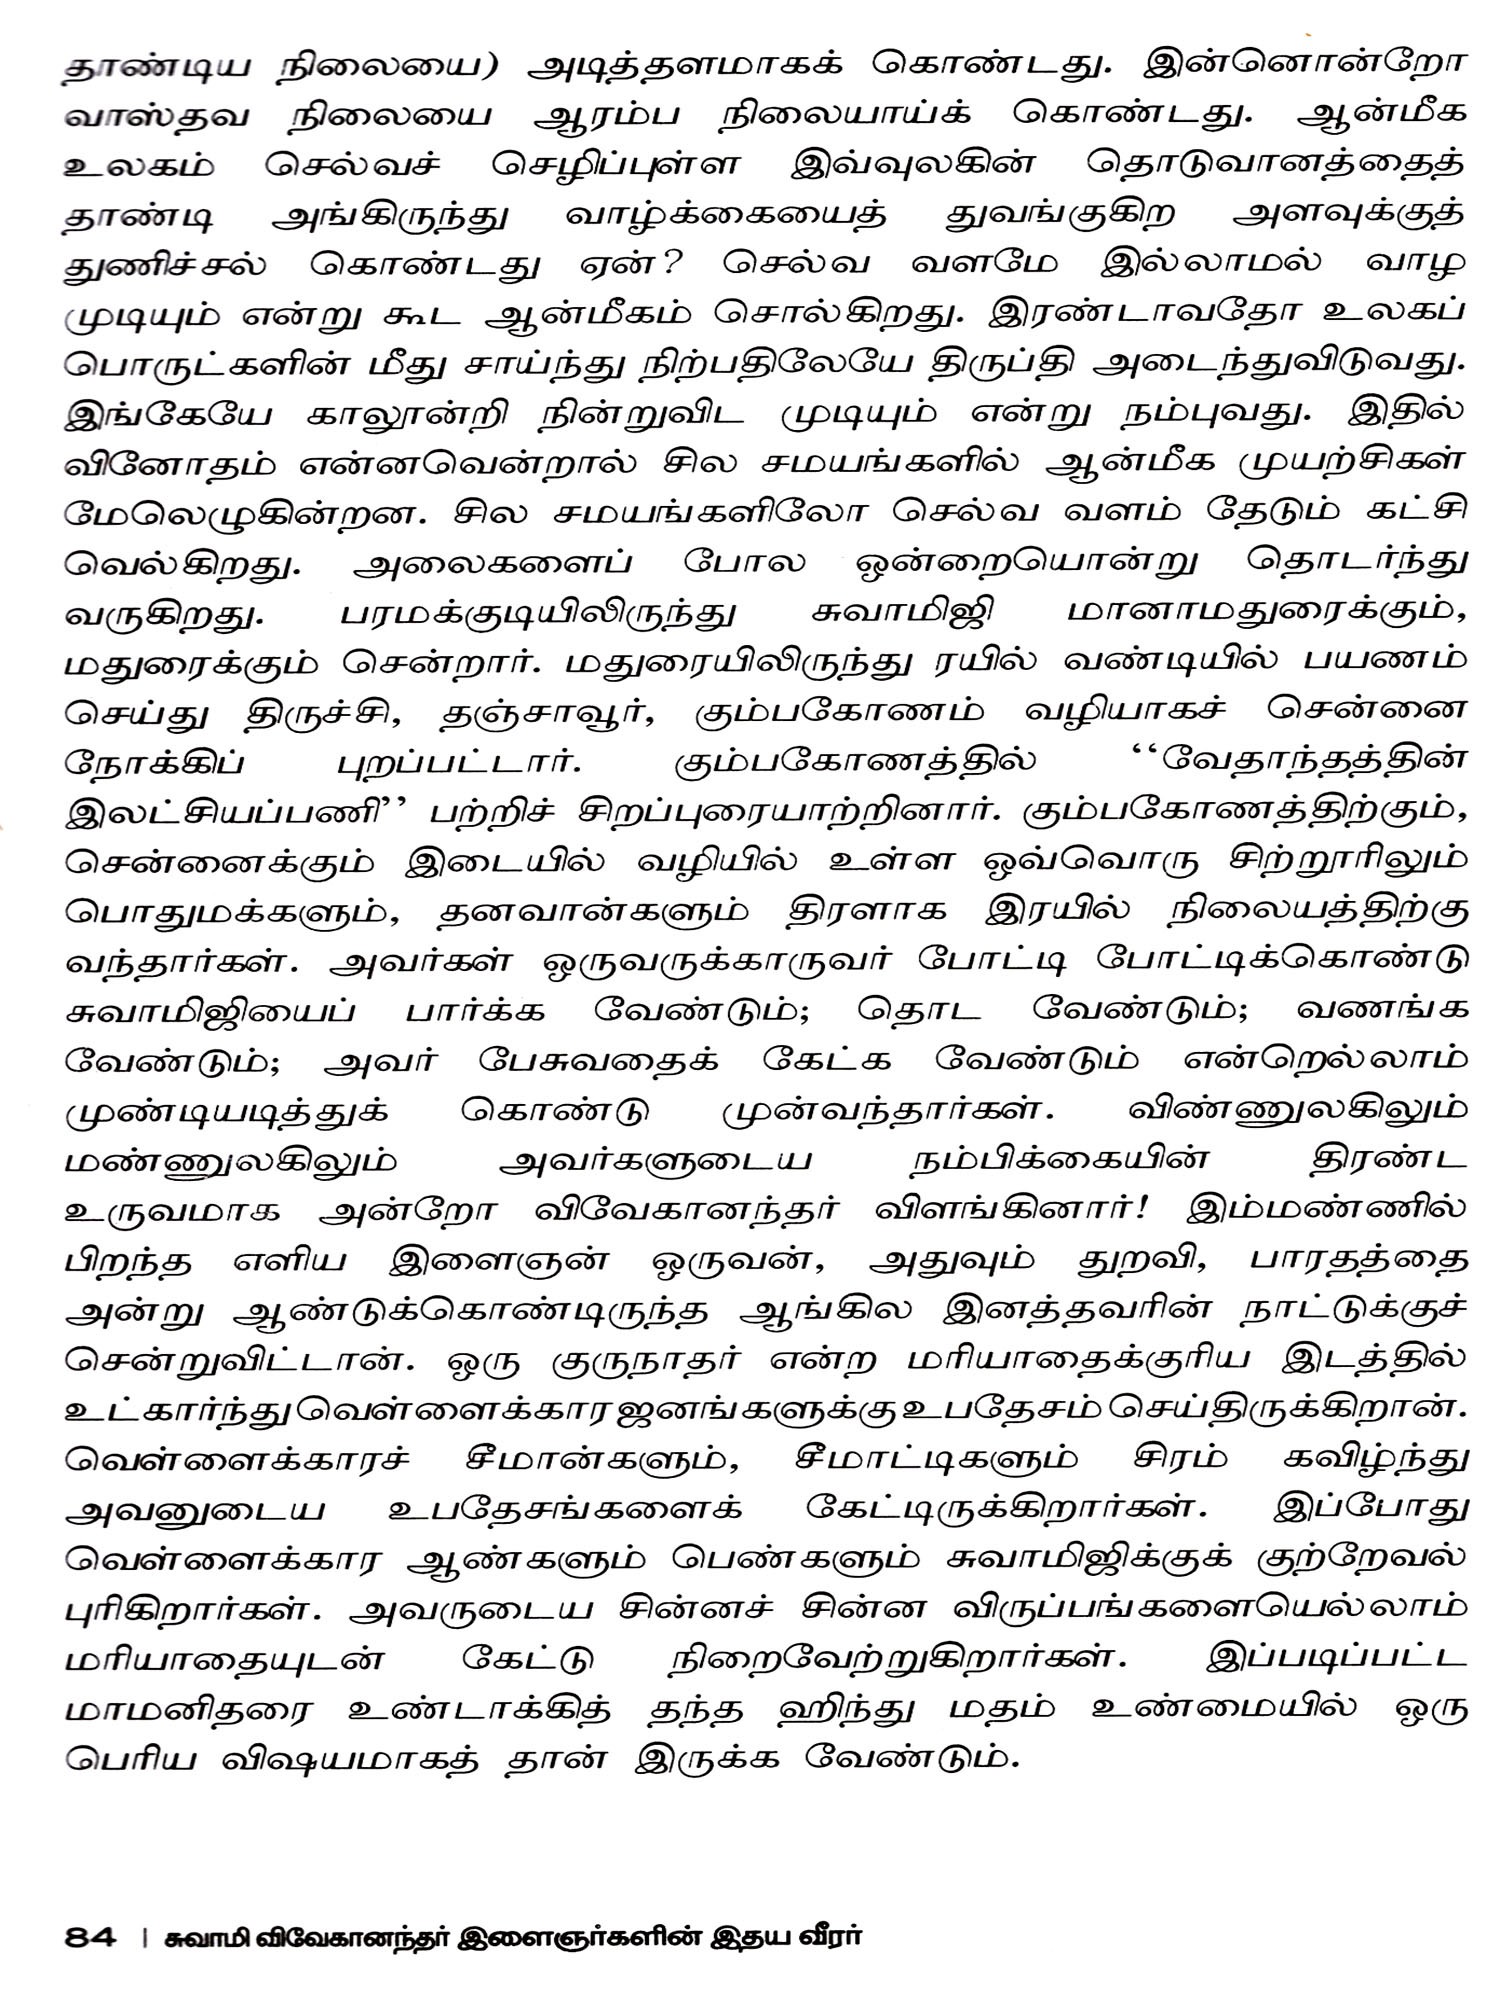 தாண்டிய நிலையை) அடித்தளமாகக் கொண்டது. இன்னொன்றோ
வாஸ்தவ நிலையை ஆரம்ப நிலையாய்க் கொண்டது. ஆன்மீக
உலகம் செல்வச் செழிப்புள்ள இவ்வுலகின் தொடுவானத்தைத்
தாண்டி அங்கிருந்து வாழ்க்கையைத் துவங்குகிற அளவுக்குத்
துணிச்சல் கொண்டது ஏன்? செல்வ வளமே இல்லாமல் வாழ
முடியும் என்று கூட ஆன்மீகம் சொல்கிறது. இரண்டாவதோ உலகப்
பொருட்களின் மீது சாய்ந்து நிற்பதிலேயே திருப்தி அடைந்துவிடுவது.
இங்கேயே காலூன்றி நின்றுவிட முடியும் என்று நம்புவது. இதில்
வினோதம் என்னவென்றால் சில சமயங்களில் ஆன்மீக முயற்சிகள்
மேலெழுகின்றன. சில சமயங்களிலோ செல்வ வளம் தேடும் கட்சி
வெல்கிறது. அலைகளைப் போல ஒன்றையொன்று தொடர்ந்து
வருகிறது. பரமக்குடியிலிருந்து சுவாமிஜி மானாமதுரைக்கும்,
மதுரைக்கும் சென்றார். மதுரையிலிருந்து ரயில் வண்டியில் பயணம்
செய்து திருச்சி, தஞ்சாவூர், கும்பகோணம் வழியாகச் சென்னை
நோக்கிப் புறப்பட்டார். கும்பகோணத்தில் ‘‘வேதாந்தத்தின்
இலட்சியப்பணி’’ பற்றிச் சிறப்புரையாற்றினார். கும்பகோணத்திற்கும்,
சென்னைக்கும் இடையில் வழியில் உள்ள ஒவ்வொரு சிற்றூரிலும்
பொதுமக்களும், தனவான்களும் திரளாக இரயில் நிலையத்திற்கு
வந்தார்கள். அவர்கள் ஒருவருக்காருவர் போட்டி போட்டிக்கொண்டு
சுவாமிஜியைப் பார்க்க வேண்டும்; தொட வேண்டும்; வணங்க
வேண்டும்; அவர் பேசுவதைக் கேட்க வேண்டும் என்றெல்லாம்
முண்டியடித்துக் கொண்டு முன்வந்தார்கள். விண்ணுலகிலும்
மண்ணுலகிலும் அவர்களுடைய நம்பிக்கையின் திரண்ட
உருவமாக அன்றோ விவேகானந்தர் விளங்கினார்! இம்மண்ணில்
பிறந்த எளிய இளைஞன் ஒருவன், அதுவும் துறவி, பாரதத்தை
அன்று ஆண்டுக்கொண்டிருந்த ஆங்கில இனத்தவரின் நாட்டுக்குச்
சென்றுவிட்டான். ஒரு குருநாதர் என்ற மரியாதைக்குரிய இடத்தில்
உட்கார்ந்து வெள்ளைக்கார ஜனங்களுக்கு உபதேசம் செய்திருக்கிறான்.
வெள்ளைக்காரச் சீமான்களும், சீமாட்டிகளும் சிரம் கவிழ்ந்து
அவனுடைய உபதேசங்களைக் கேட்டிருக்கிறார்கள். இப்போது
வெள்ளைக்கார ஆண்களும் பெண்களும் சுவாமிஜிக்குக் குற்றேவல்
புரிகிறார்கள். அவருடைய சின்னச் சின்ன விருப்பங்களையெல்லாம்
மரியாதையுடன் கேட்டு நிறைவேற்றுகிறார்கள். இப்படிப்பட்ட
மாமனிதரை உண்டாக்கித் தந்த ஹிந்து மதம் உண்மையில் ஒரு
பெரிய விஷயமாகத் தான் இருக்க வேண்டும்.
84 | சுவாமி விவேகானந்தர் இளைஞர்களின் இதய வீரர்